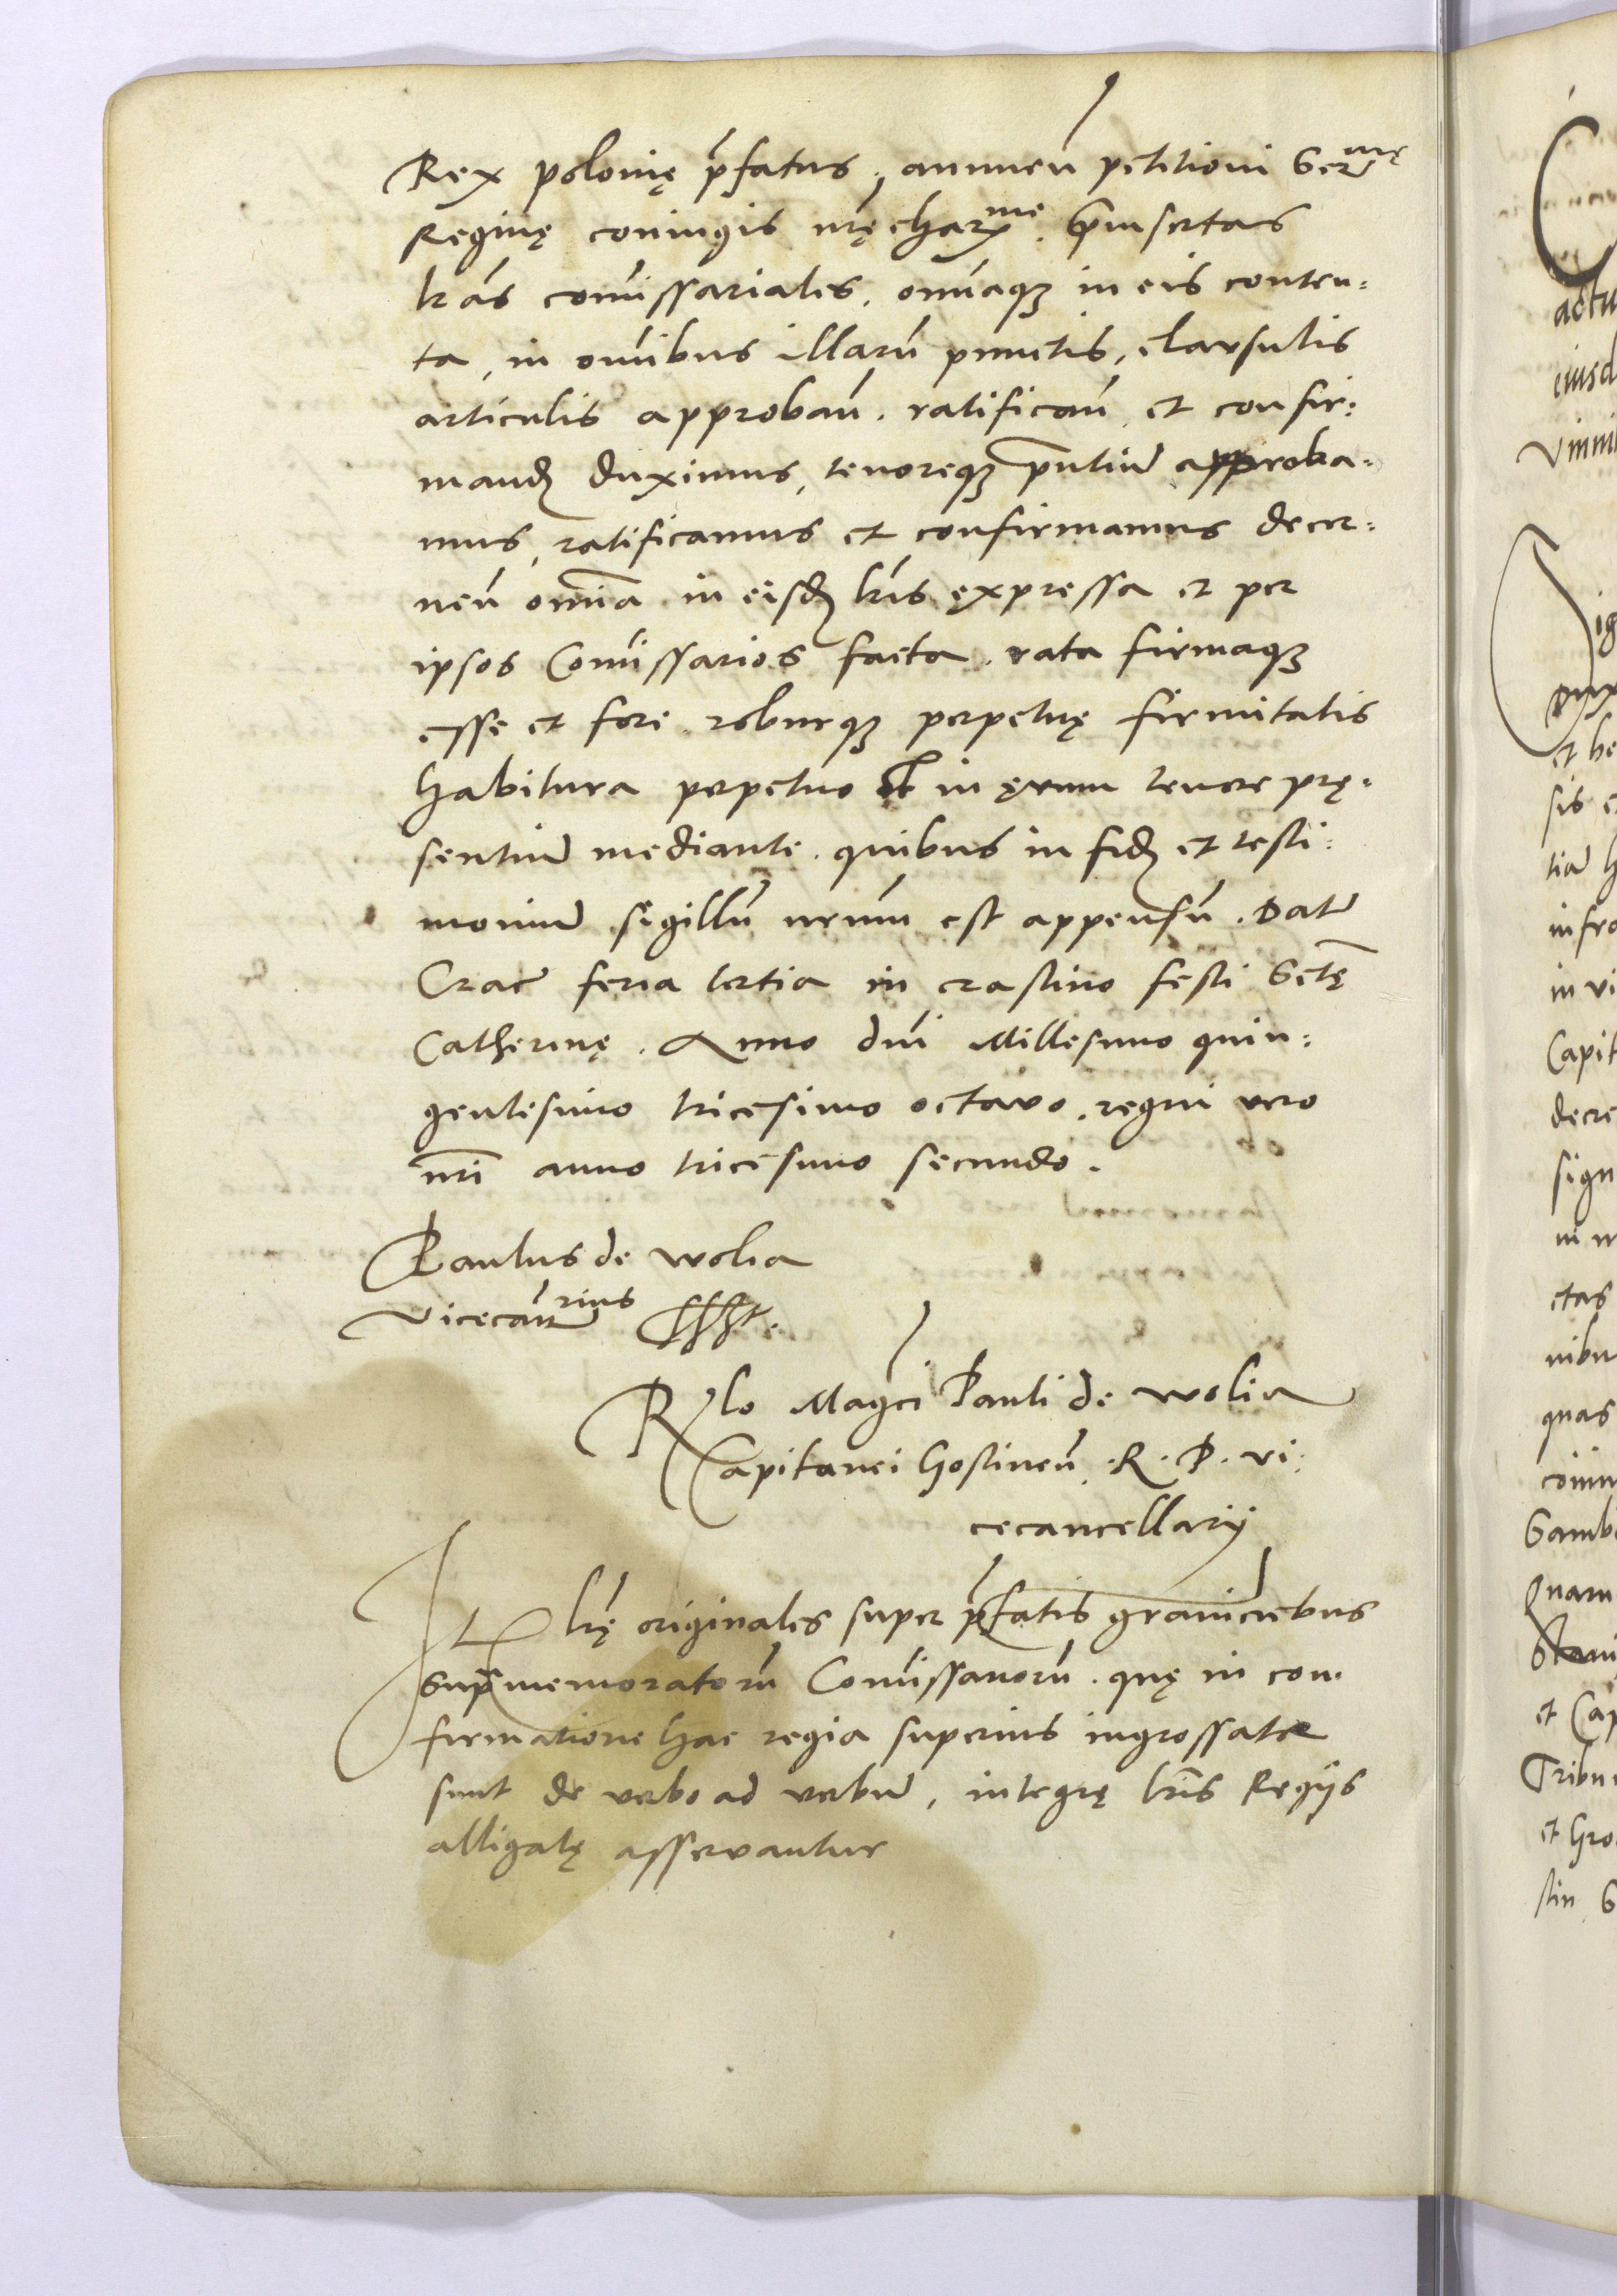 Rex polonię p̄fatus, annuen̄ petitioni Serᵐę
Reginę coniugis nr̄ę charᵐᵉ. p̄insertas
lr̄as com̄issariales, om̄iaqꝫ in eis conten:
ta, in om̄ibus illarū punctis, clausulis
articulis approban̄. ratifican̄ et confir:
mand̄ duximus, tenoreqꝫ p̄ntiū approba:
mus, ratificamus et confirmamus decer:
nen̄ om̄ia in eisd̄ lr̄is expressa et per
ipsos Com̄issarios facta. rata firmaqꝫ
esse et fore roburqꝫ perpetuę firmitatis
habitura perpetuo et in ęvum tenore prę:
sentiū mediante. quibus in fid̄ et testi:
moniū sigillū nr̄um est appensū. Datū
Crac̄ feria tertia in crastino festi Sctę
Catherinę. Anno dn̄i Millesimo quin:
gentesimo tricesimo octavo, regni vero
nr̄i anno tricesimo secundo.
Paulus de Wolia
Vicecan̄rius sssst.
Rl̄o Maḡci Pauli de Wolia
Capitanei Gostinen̄. R. P. vi:
cecancellarij
It lr̄ę originales super p̄fatis graniciebus
sup̄memoratorū Com̄issariorū. quę in con:
firmatione hac regia superius ingrossate
sunt de verbo ad verbū, integrę lr̄is Regijs
alligatę asservantur
actu
eiusd
Vinni
et he
sis e
tiā h
infra
in vi
Capit
decre
sign
in m
ctas
nibu
quas
Samb
quam
et Cap
Tribu
et Gro
stin S